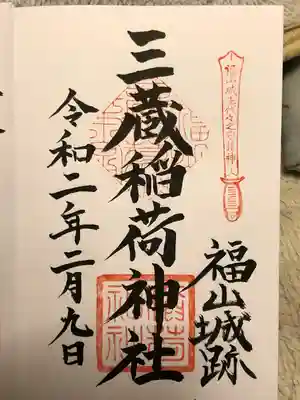 福山城跡
三蔵稲荷神社
令和二年二月九日